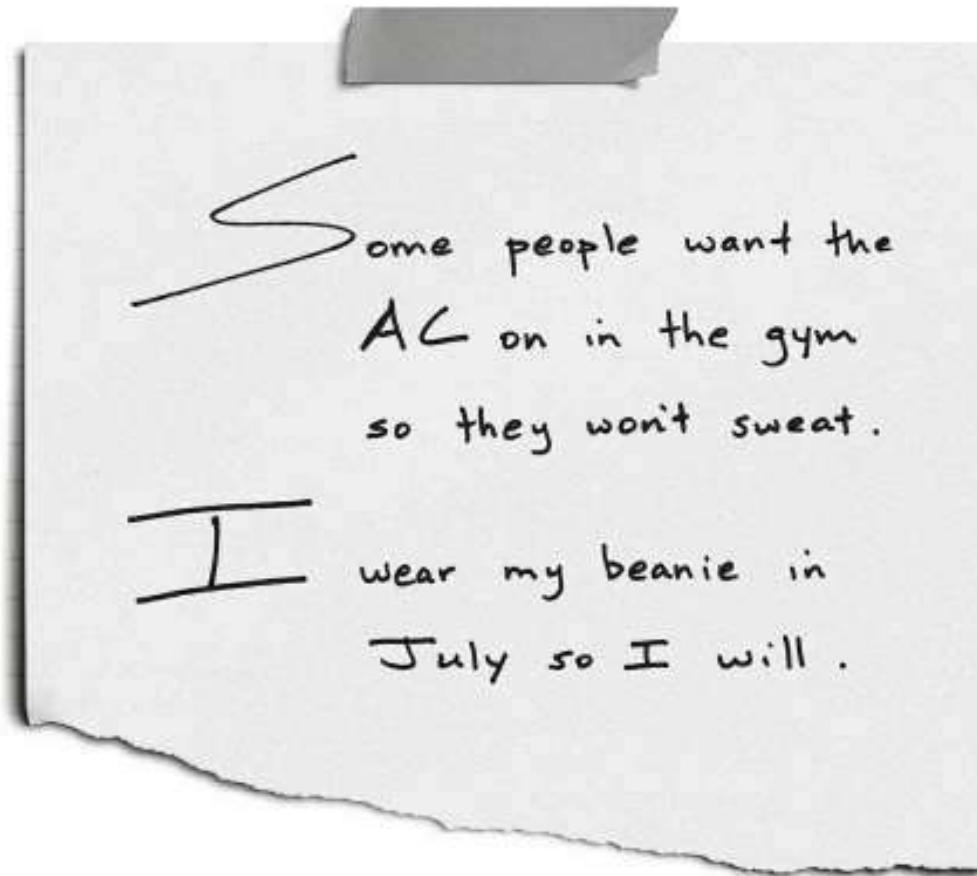 Some people want the
AC on in the gym
so they won't sweat.
I wear my beanie in
July so I will.